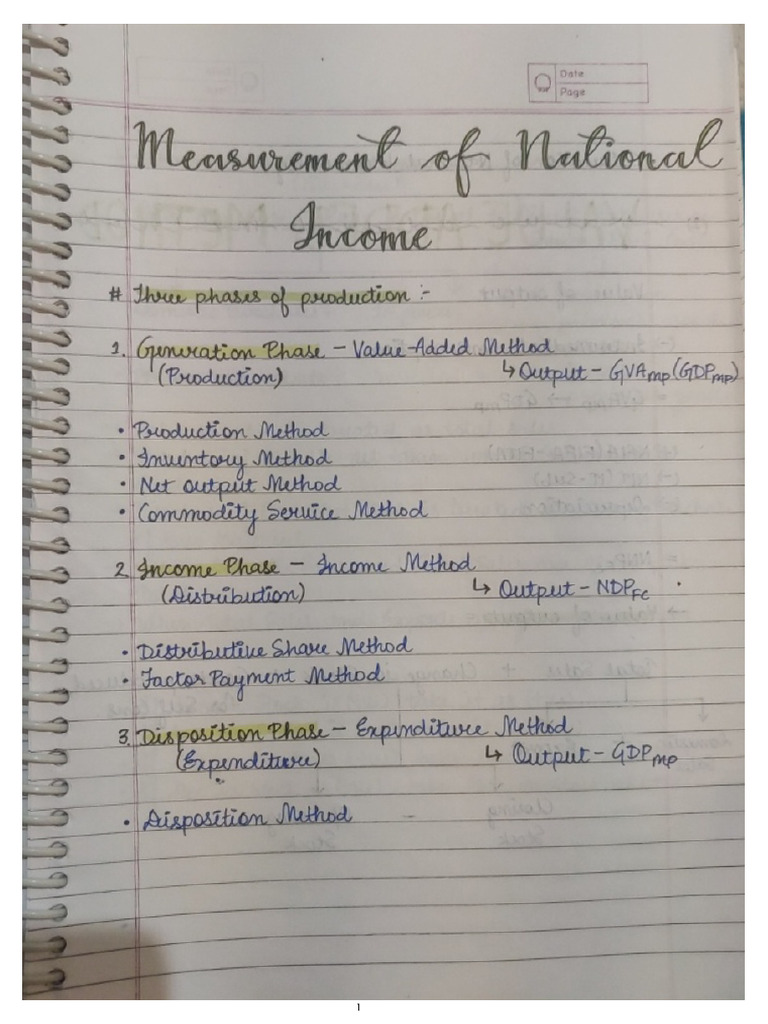 Date
Page
Measurement of National
Income
# Three phases of production :-
1. Generation Phase - Value-Added Method
(Production) ↳ Output - GVAMP (GDPMP)
• Production Method
• Inventory Method
• Net output Method
• Commodity Service Method
2. Income Phase - Income Method
(Distribution) ↳ Output - NDPFC
• Distributive Share Method
• Factor Payment Method
3. Disposition Phase - Expenditure Method
(Expenditure) ↳ Output - GDPMP
• Disposition Method
1